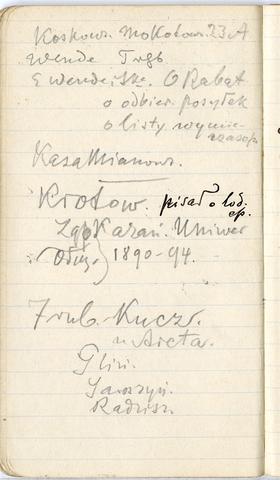 Koskows. Mokotow. 23 A
Wende Trgb
E Wende i Ske. O Rabat
o odbier. posyłek
o listy
czasop.
KasaMianows.
Krotow. pisał o lod.
ep.
Zgł Kazań. Uniwer
1890-94.
Trub. Kucz.
u Arcta.
Gliń.
Jaroszyń.
Radzisz.